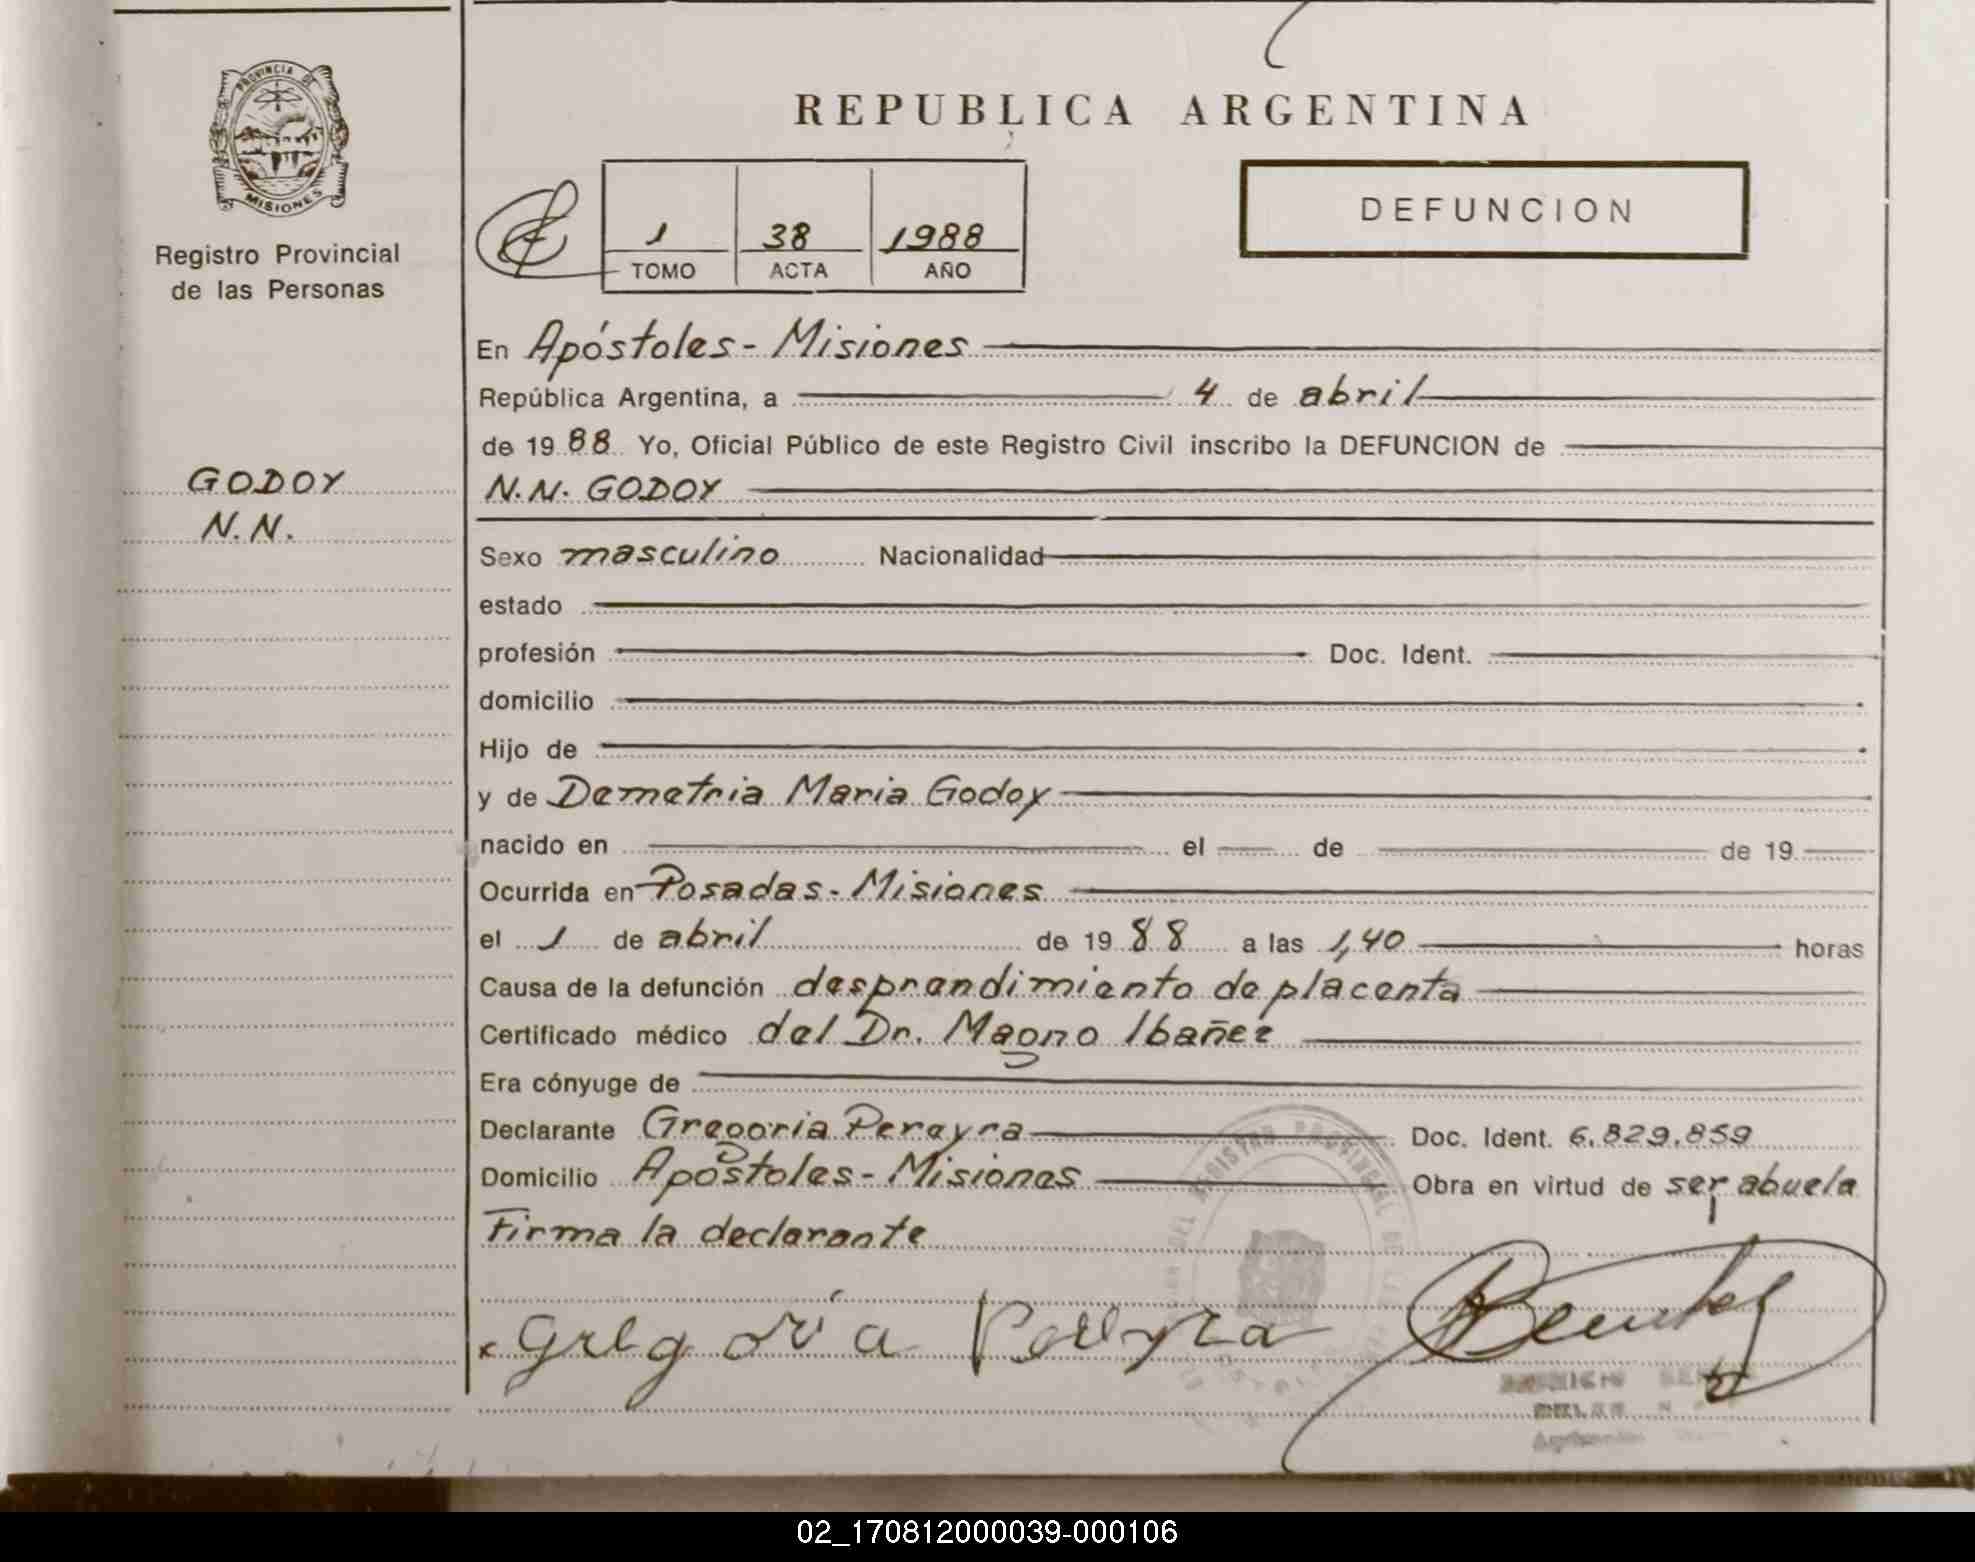 REPUBLICA ARGENTINA
PROVINCIA DE
MISIONES
Registro Provincial
de las Personas
1 38 1988
TOMO ACTA AÑO
DEFUNCION
GODOY
N.N.
En Apóstoles - Misiones
República Argentina, a 4 de abril
de 1988 Yo, Oficial Público de este Registro Civil inscribo la DEFUNCION de
N.N. GODOY
Sexo masculino Nacionalidad
estado
profesión Doc. Ident.
domicilio
Hijo de
y de Demetria Maria Godoy
nacido en el de de 19
Ocurrida en Posadas - Misiones
el 1 de abril de 1988 a las 1,40 horas
Causa de la defunción desprendimiento de placenta
Certificado médico del Dr. Magno Ibañez
Era cónyuge de
Declarante Gregoria Pereyra Doc. Ident. 6.829.859
Domicilio Apóstoles - Misiones Obra en virtud de ser abuela
Firma la declarante
x Gregoria Pereyra
02_170812000039-000106